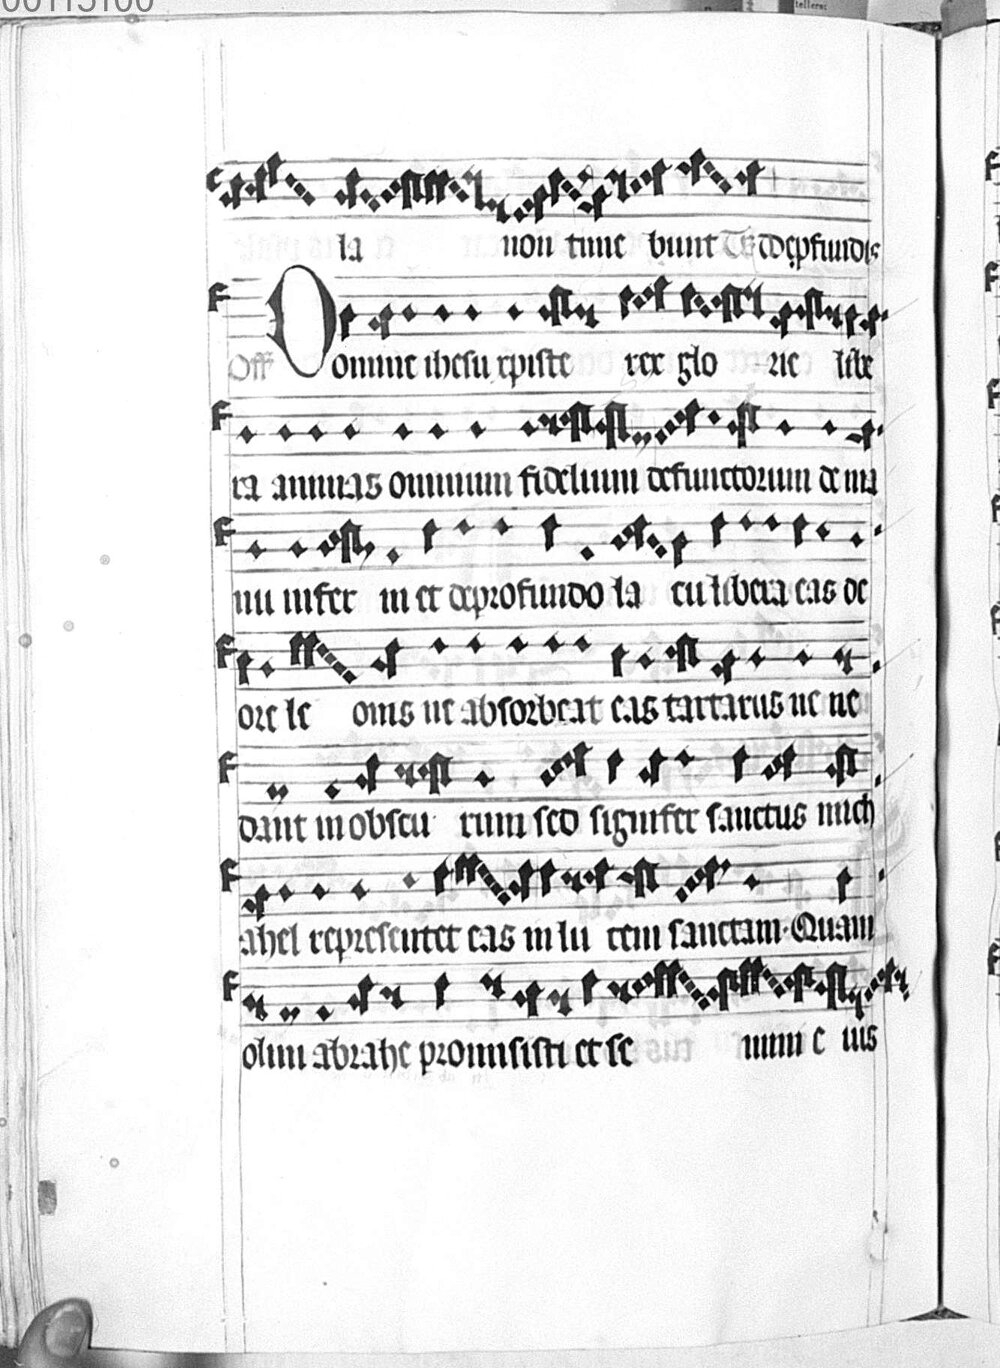 la non time bunt Tc De ꝓfundis
Off Domine ihesu xpiste rex glo rie libe
ra animas omnium fidelium defunctorum de ma
nu infer ni et deprofundo la cu libera eas de
ore le onis ne absorbeat eas tartarus ne ne
dant in obscu rum sed signifer sanctus mich
ahel representet eas in lu cem sanctam. Quam
olim abrahe promisisti et se mini e ius